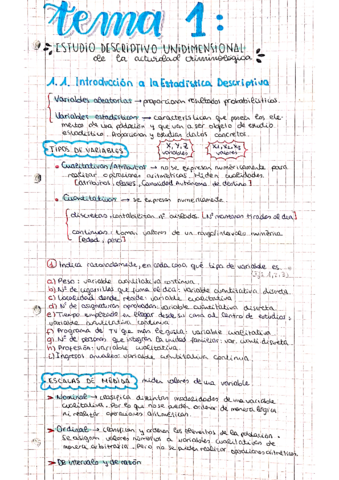 tema 1:
ESTUDIO DESCRIPTIVO UNIDIMENSIONAL
de la actividad criminológica
1.1. Introducción a la Estadística Descriptiva
Variables aleatorias → proporcionan resultados probabilísticos.
Variables estadísticas → características que poseen los ele-
mentos de una población y que van a ser objeto de estudio
estadístico. Proporcionan y estudian datos concretos.
TIPOS DE VARIABLES
X, Y, Z
variables
X1, X2, X3
valores
• Cualitativas/atributos → no se expresan numéricamente para
realizar operaciones aritméticas. Miden cualidades.
[atributos, clases, Comunidad Autónoma de destino]
• Cuantitativas → se expresan numéricamente
discretas: contabilizan nº asiladas. [nº manzanas tiradas al día]
continuas: toman valores de un rango/intervalo numérico
[edad, peso]
① Indica razonadamente, en cada caso qué tipo de variable es
a) Peso: variable cuantitativa continua
b) Nº de cigarrillos que fuma al día: variable cuantitativa discreta
c) Localidad donde reside: variable cualitativa
d) Nº de asignaturas aprobadas: variable cuantitativa discreta
e) Tiempo empleado en llegar desde su casa al Centro de estudios:
variable cuantitativa continua
f) Programa de TV que más le gusta: variable cualitativa
g) Nº de personas que integran la unidad familiar: var. cuanti. discreta
h) Profesión: variable cualitativa
i) Ingresos anuales: variable cuantitativa continua.
ESCALAS DE MEDIDA
miden valores de una variable
➤ Nominal → clasifica distintas modalidades de una variable
cualitativa. Por lo que no se pueden ordenar de manera lógica
ni realizar operaciones aritméticas.
➤ Ordinal → clasifican y ordenan los elementos de la población.
Se asignan valores numéricos a variables cualitativas de
manera arbitraria, pero no se pueden realizar operaciones aritméticas.
➤ De intervalo y de razón